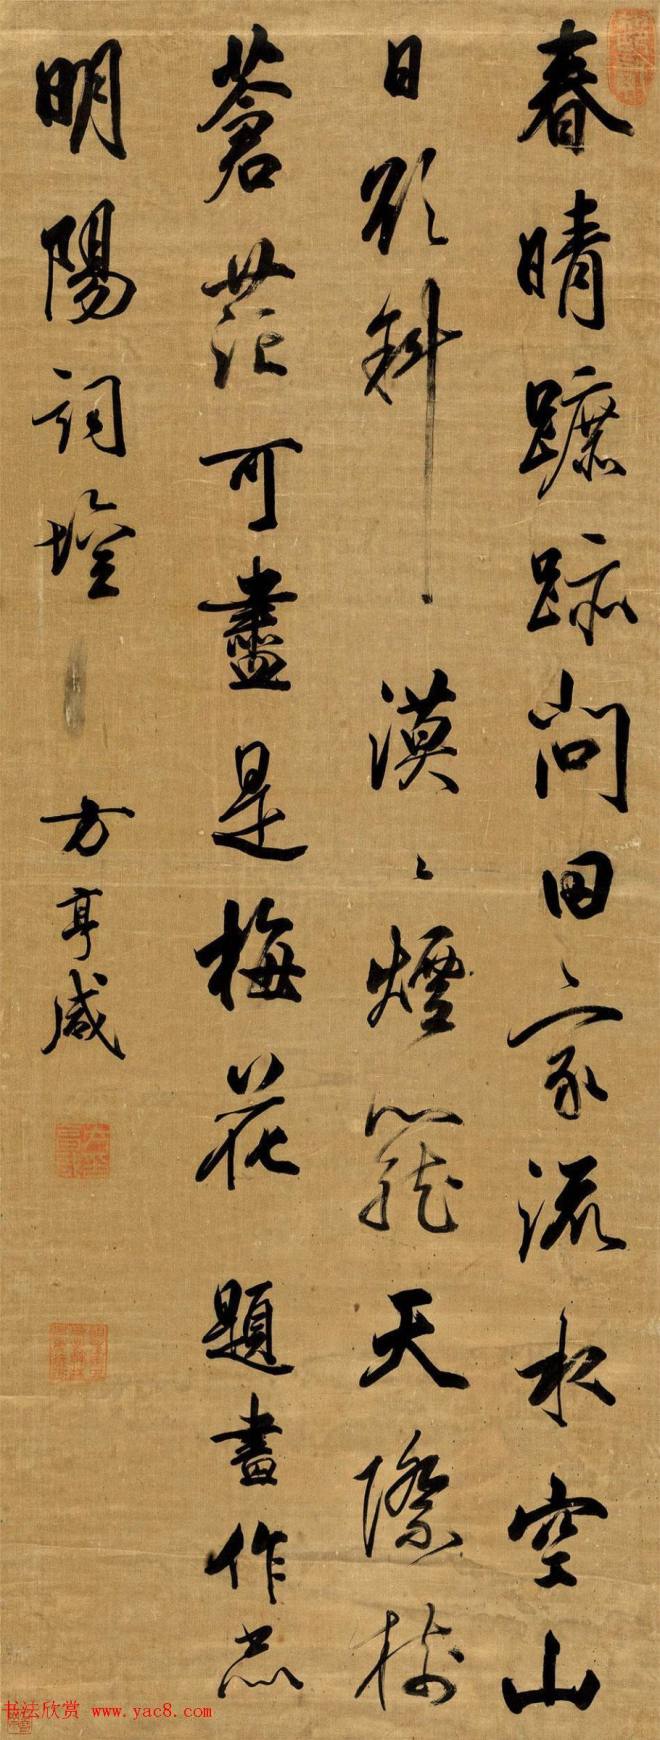 春晴蹠跡問田家流水空山
日欲斜漠〻煙籠天際樹
蒼茫可盡是梅花 題畫作
明陽詞壇 方亨咸
书法欣赏 www.yac8.com